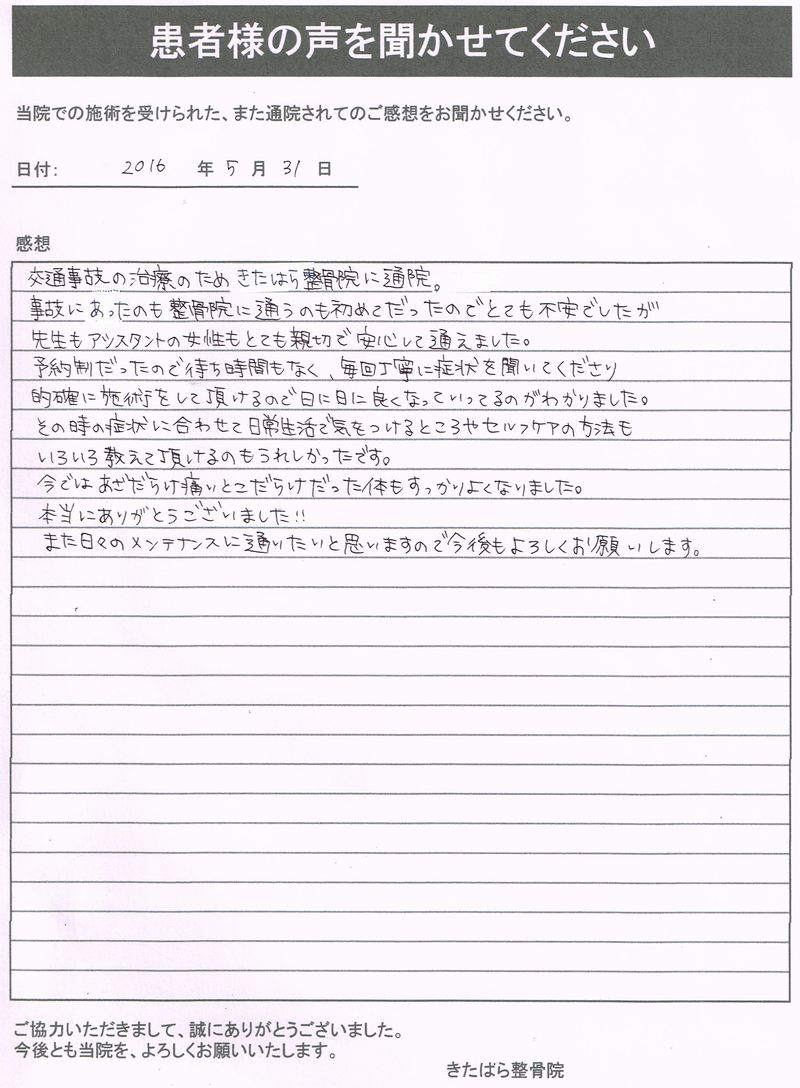 患者様の声を聞かせてください
当院での施術を受けられた、また通院されてのご感想をお聞かせください。
日付: 2016 年 5 月 31 日
感想
交通事故の治療のため きたはら整骨院に通院。
事故にあったのも整骨院に通うのも初めてだったのでとても不安でしたが
先生もアシスタントの女性もとても親切で安心して通えました。
予約制だったので待ち時間もなく、毎回丁寧に症状を聞いてくださり
的確に施術をして頂けるので日に日に良くなっていってるのがわかりました。
その時の症状に合わせて日常生活で気をつけるところやセルフケアの方法も
いろいろ教えて頂けるのもうれしかったです。
今ではあざだらけ痛いとこだらけだった体もすっかりよくなりました。
本当にありがとうございました!!
また日々のメンテナンスに通いたいと思いますので今後もよろしくお願いします。
ご協力いただきまして、誠にありがとうございました。
今後とも当院を、よろしくお願いいたします。
きたばら整骨院